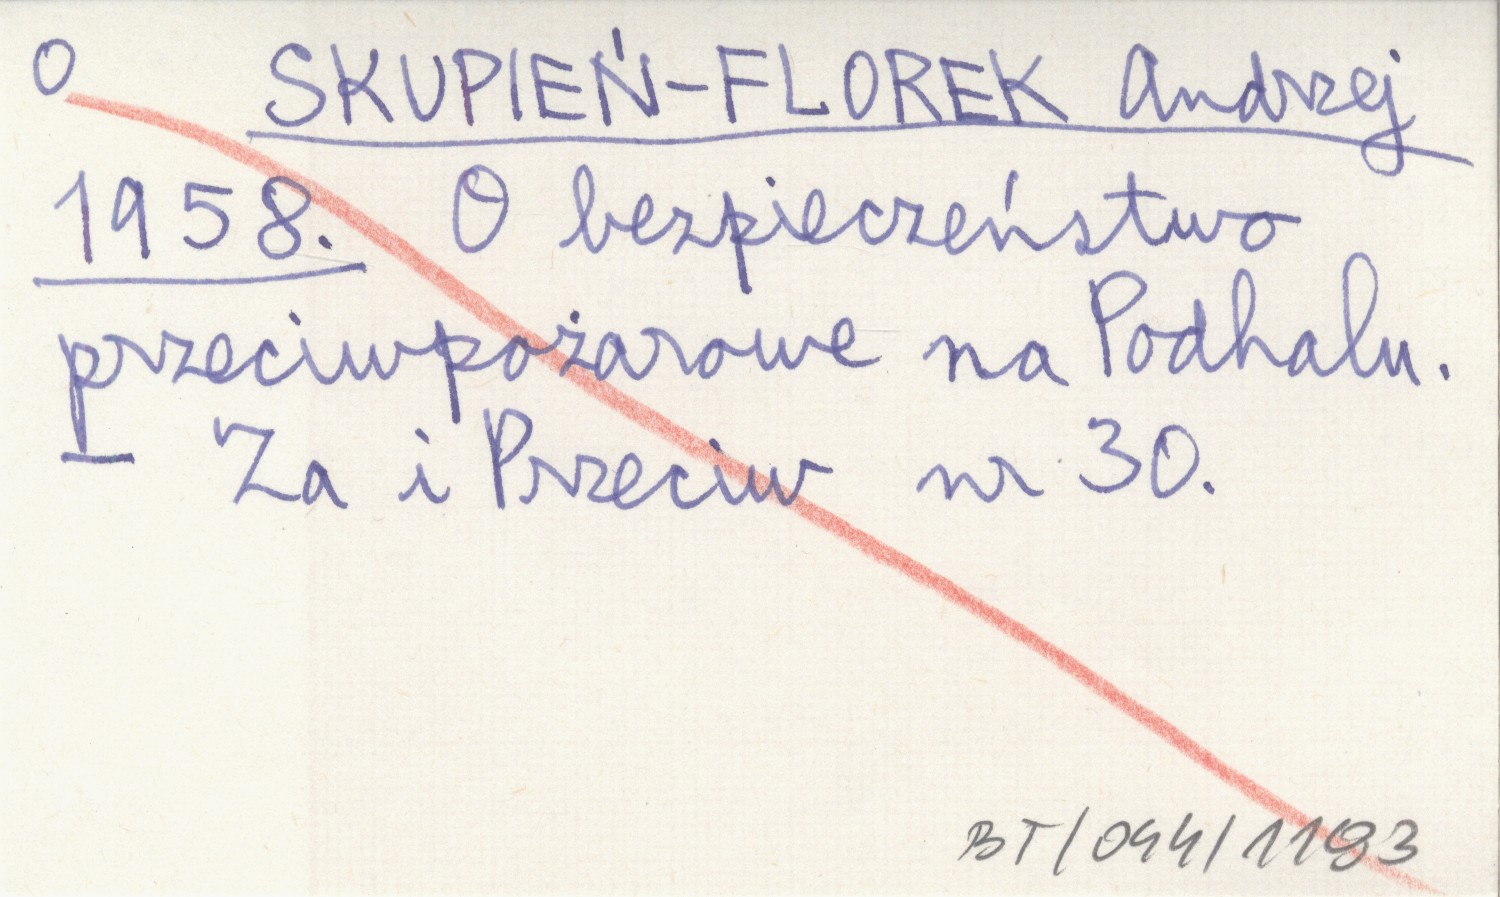 O SKUPIEŃ-FLOREK Andrzej
1958. O bezpieczeństwo
przeciwpożarowe na Podhalu.
— Za i Przeciw nr 30.
BT/044/1193